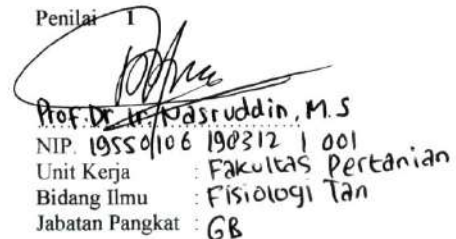 Penilai 1
Prof. Dr. Ir. Nasruddin, M.S
NIP. 19550106 198312 1 001
Unit Kerja : Fakultas Pertanian
Bidang Ilmu : Fisiologi Tan
Jabatan Pangkat : GB